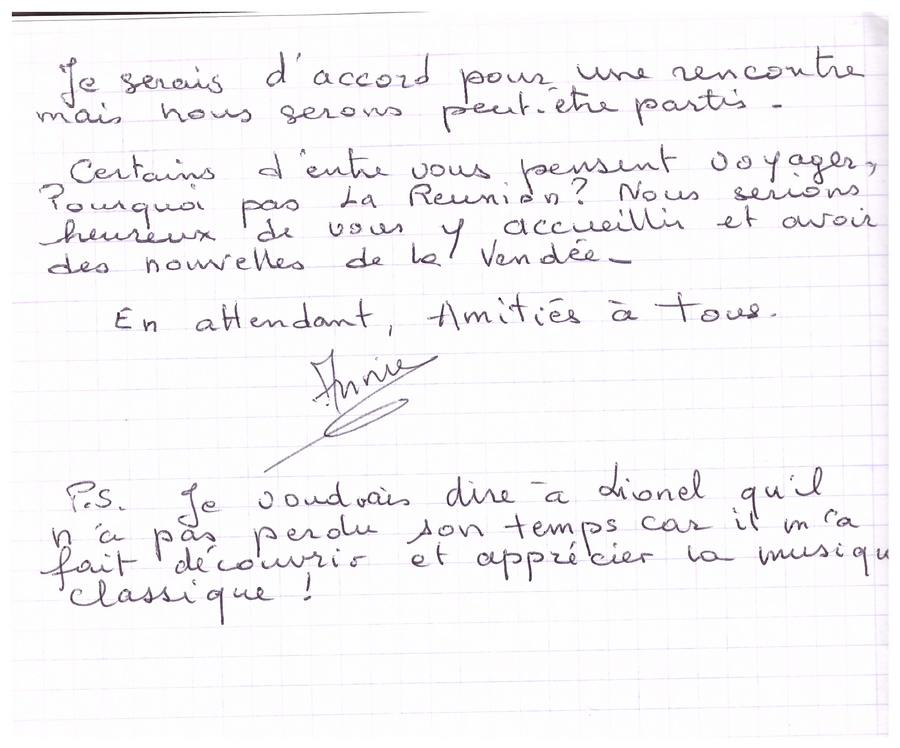 Je serais d'accord pour une rencontre
mais nous serons peut-être partis -
Certains d'entre vous pensent voyager,
Pourquoi pas La Reunion? Nous serions
heureux de vous y accueillir et avoir
des nouvelles de la Vendée -
En attendant, Amitiés à tous.
Annie
P.S. Je voudrais dire à Lionel qu'il
n'a pas perdu son temps car il m'a
fait découvrir et apprécier la musiqu
classique !